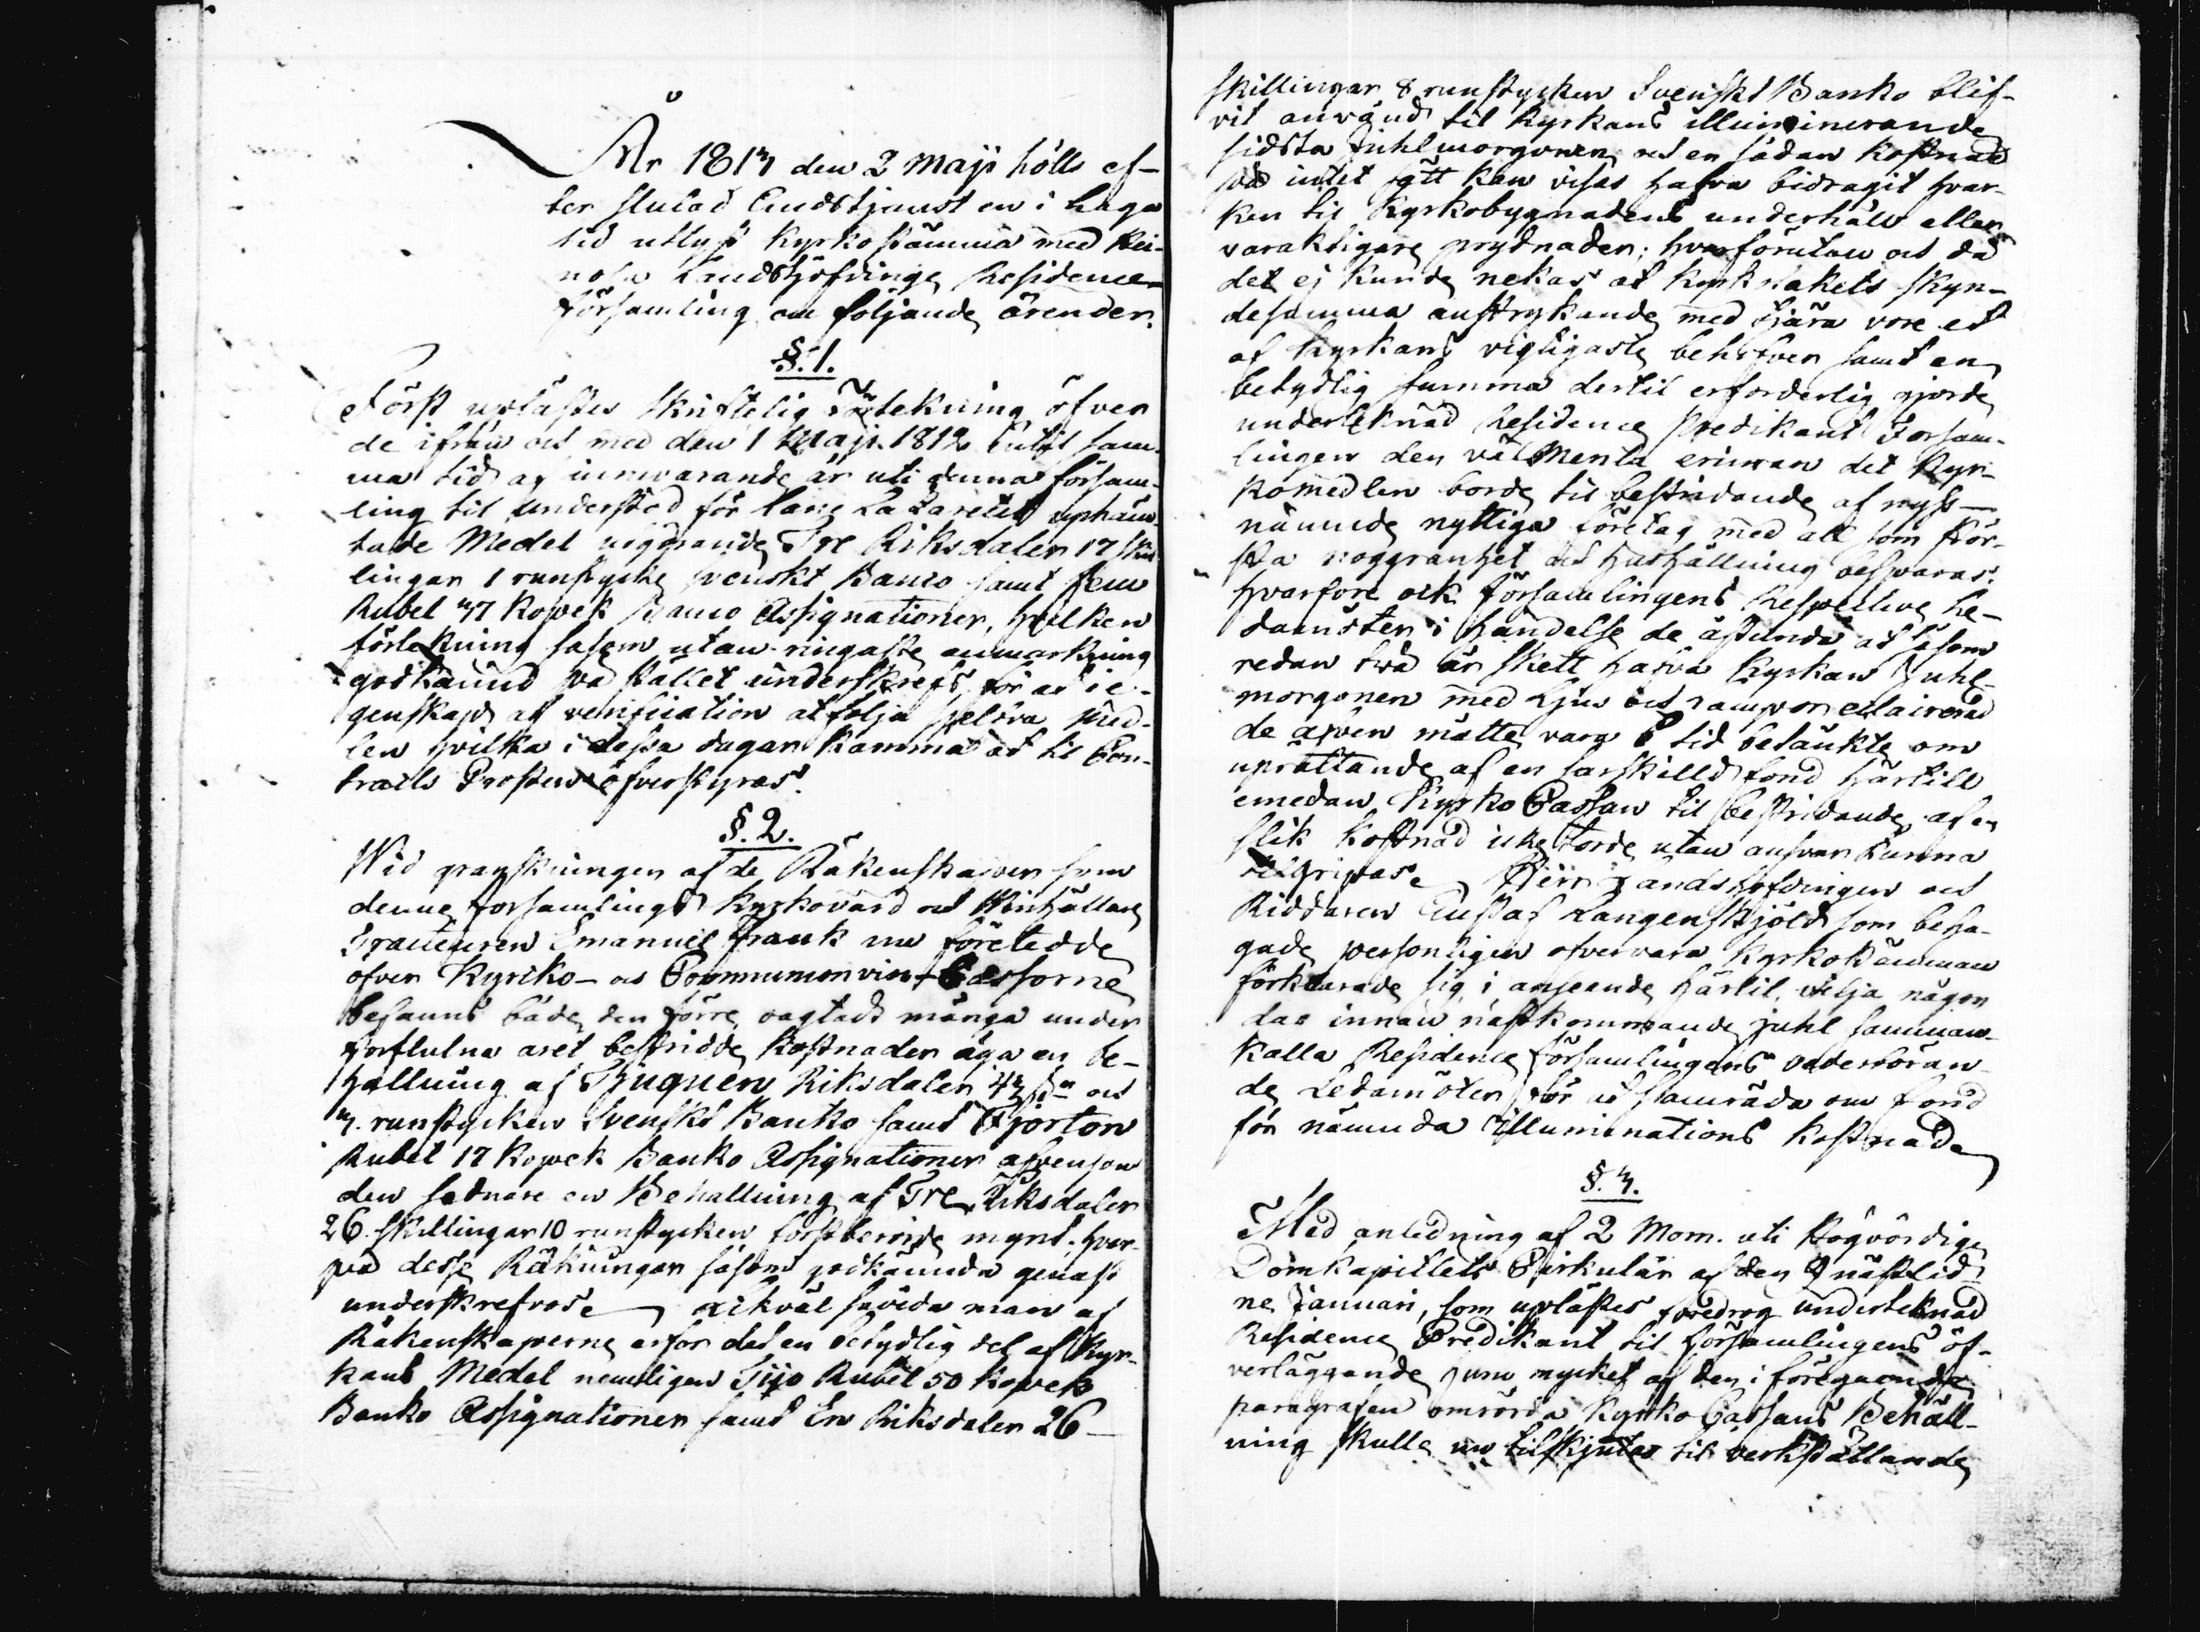 År 1813 den 2 Maji hölls ef-
ter slutad Gudstjenst en i laga
tid utlyst Kyrkostämma med Hei-
nola Landshöfdinge Residence
församling om följande ärender.
§. 1.
Först uplästes skriftelig Förtekning öfver
de ifrån och med den 1 Maji 1812 intil sam-
ma tid af innevarande år uti denna församling
ling til understöd för Lane Lazarettet uphäm-
tade Medel utgörande Tre Riksdaler 17 skil-
lingar 1 runstycke svenskt Banco samt fem
Rubel 37 Kopek Banco Assignationer, hvilken
förtekning såsom utan ringaste anmärkning
godkännd på stället underskrefs för at i e-
genskap af verification åtfölja sjelfva med-
len hvilka i dessa dagar komma at til Con-
tracts Prosten öfverstyras.
§. 2.
Wid granskningen af de Räkenskaper som
denne Församlings kyrkovärd och Winhållare
Tracteuren Emanuel Frank nu företedde
öfver Kyrko- och Communionvin-Cassorne
befanns både den förre, oagtadt många under
förflutna året bestridde kostnader äga en be-
hållning af Tjugien Riksdaler 43 sk och
3. runstycken Svenskt Banko samt Fjorton
Rubel 17 Kopek Banko Assignationer äfvensom
den sednare en Behållning af Tre Riksdaler
26 skillingar 10 runstycken förstberörde mynt. hvar-
på desse Räkningar såsom godkännda genast
underskrefvos. Likväl såvida man af
Räkenskaperne erfor det en betydlig del af Kyr-
kans Medel nemligen Tijo Rubel 50 Kopek
Banko Assignationer samt En Riksdaler 26
skillingar 8 runstycken Svenskt Banko blif-
vit använd til Kyrkans illuminerande
sidsta Juhlmorgonen och en sådan kostnad
på intet sätt kan visas hafva bidragit hvar-
ken til Kyrkobygnadens underhåll eller
varaktigare prydnader; hvarförutan och då
det ej kunde nekas at kyrktakets skyn-
desamma anstrykande med tjära vore et
af Kyrkans vigtigaste behofver samt en
betydlig summa dertil erforderlig gjorde
underteknad Residence Predikant Försam-
lingen den väl Menta erinran det Kyr-
komedlen borde til bestridande af nyss-
nämnde nyttiga företag med all som stör-
sta noggranhet och hushållning besparas.
hvarföre ock församlingens Respective Le-
damöter i händelse de åstunda at såsom
redan två år skett hafva Kyrkan Juhl-
morgonen med Ljus och lampor eclairerad
de äfven måtte vara i tid betänkte om
uprättande af en särskilld fond härtill
emedan Kyrko Cassan til bestridande af en
slik kostnad icke torde utan ansvar kunna
tilgripas. Herr Landshöfdingen och
Riddaren Gustaf Langenskjöld som beha-
gade personligen öfvervara Kyrkostämman
förklarade sig, i anseende härtil, vilja någon
dag innan nästkommande juhl samman-
kalla Residence församlingens vederböran-
de Ledamöter för at samråda om fond
för nämnda illuminations kostnade
§. 3.
Med anledning af 2 Mom. uti Högvördige
Domkapitlets Cirkulär af den 9 nästled-
ne Januari, som uplästes föredrog underteknad
Residence Predikant til församlingens öf-
verläggande huru mycket af den i föregående
paragrafen omrörda Kyrko Cassans Behåll-
ning skulle nu tilskjutas til verkställande